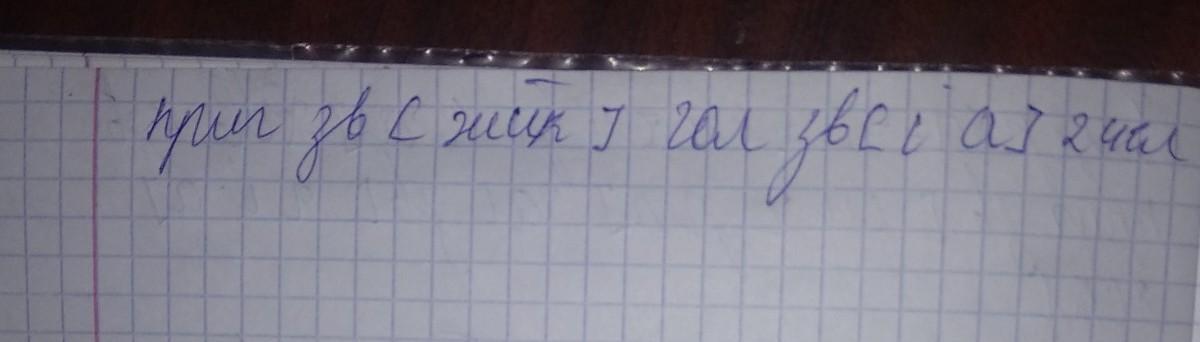 приг зв [ жшк ] гол зв [ і а ] 2 скл